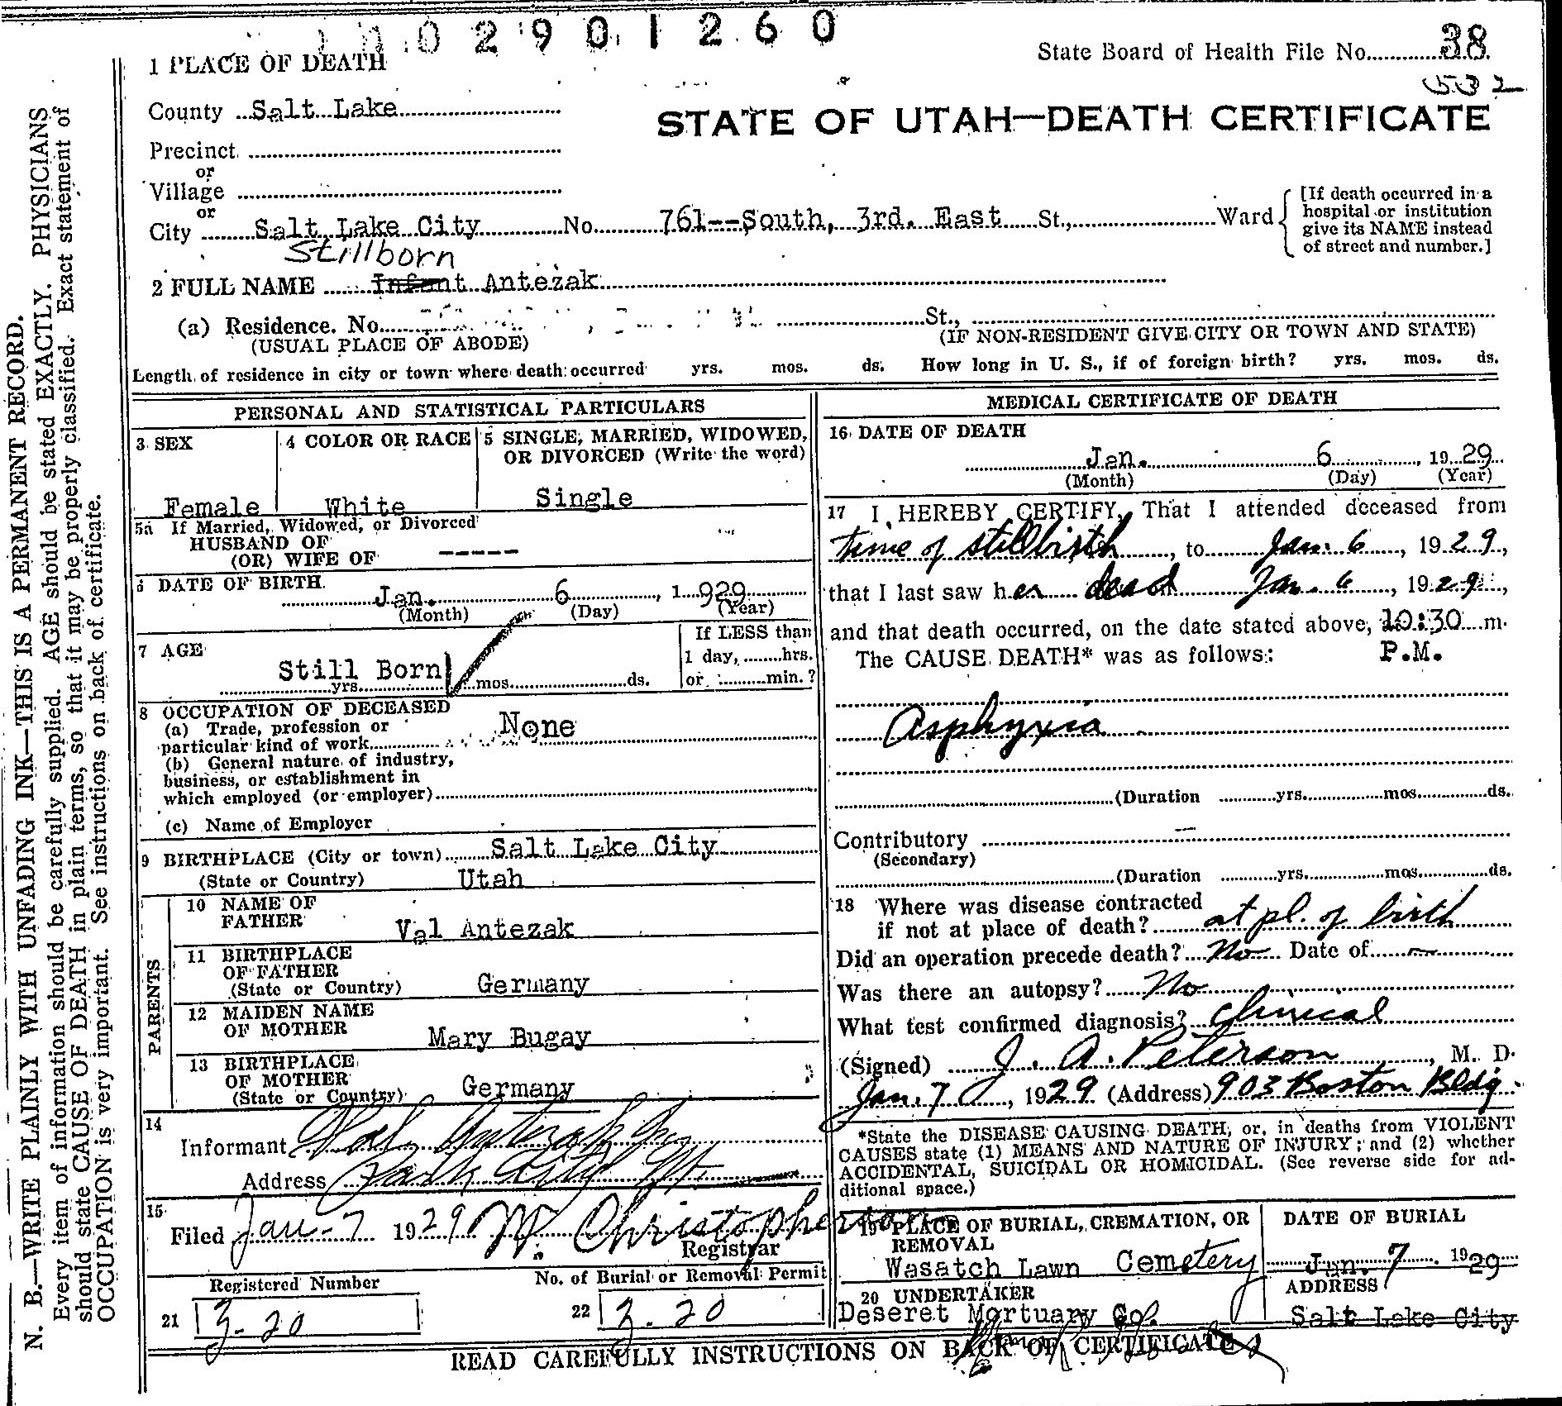 0 2 9 0 1 2 6 0
State Board of Health File No. 38
532
1 PLACE OF DEATH
STATE OF UTAH—DEATH CERTIFICATE
County Salt Lake
Precinct
or
Village
or
City Salt Lake City No. 761--South, 3rd. East St., Ward
[If death occurred in a
hospital or institution
give its NAME instead
of street and number.]
Stillborn
2 FULL NAME Infant Antezak
(a) Residence. No. St.,
(USUAL PLACE OF ABODE) (IF NON-RESIDENT GIVE CITY OR TOWN AND STATE)
Length of residence in city or town where death occurred yrs. mos. ds. How long in U. S., if of foreign birth? yrs. mos. ds.
PERSONAL AND STATISTICAL PARTICULARS
3 SEX
Female
4 COLOR OR RACE
White
5 SINGLE, MARRIED, WIDOWED,
OR DIVORCED (Write the word)
Single
5a If Married, Widowed, or Divorced
HUSBAND OF
(OR) WIFE OF -----
6 DATE OF BIRTH
Jan. 6, 1929
(Month) (Day) (Year)
7 AGE
Still Born
yrs. mos. ds.
If LESS than
1 day, hrs.
or min.?
8 OCCUPATION OF DECEASED
(a) Trade, profession or
particular kind of work None
(b) General nature of industry,
business, or establishment in
which employed (or employer)
(c) Name of Employer
9 BIRTHPLACE (City or town) Salt Lake City
(State or Country) Utah
PARENTS
10 NAME OF
FATHER Val Antezak
11 BIRTHPLACE
OF FATHER
(State or Country) Germany
12 MAIDEN NAME
OF MOTHER Mary Bugay
13 BIRTHPLACE
OF MOTHER
(State or Country) Germany
14
Informant Val
Address City
15
Filed Jan-7 1929 W. Christopherson
Registrar
Registered Number
21 3-20
No. of Burial or Removal Permit
22 3-20
MEDICAL CERTIFICATE OF DEATH
16 DATE OF DEATH
Jan. 6, 1929
(Month) (Day) (Year)
17 I HEREBY CERTIFY, That I attended deceased from
time of stillbirth, to Jan. 6, 1929,
that I last saw her dead Jan. 6, 1929,
and that death occurred, on the date stated above, 10:30 m.
The CAUSE DEATH* was as follows: P.M.
Asphyxia
(Duration yrs. mos. ds.
Contributory —
(Secondary)
(Duration yrs. mos. ds.
18 Where was disease contracted
if not at place of death? at pl. of birth
Did an operation precede death? No Date of —
Was there an autopsy? No
What test confirmed diagnosis? Clinical
(Signed) J. A. Peterson, M. D.
Jan. 7, 1929 (Address) 903 Boston Bldg.
*State the DISEASE CAUSING DEATH, or, in deaths from VIOLENT
CAUSES state (1) MEANS AND NATURE OF INJURY; and (2) whether
ACCIDENTAL, SUICIDAL OR HOMICIDAL. (See reverse side for ad-
ditional space.)
19 PLACE OF BURIAL, CREMATION, OR
REMOVAL
Wasatch Lawn Cemetery
DATE OF BURIAL
Jan. 7 1929
20 UNDERTAKER
Deseret Mortuary Co.
ADDRESS
Salt Lake City
READ CAREFULLY INSTRUCTIONS ON BACK OF CERTIFICATE
N. B.—WRITE PLAINLY WITH UNFADING INK—THIS IS A PERMANENT RECORD.
Every item of information should be carefully supplied. AGE should be stated EXACTLY. PHYSICIANS
should state CAUSE OF DEATH in plain terms, so that it may be properly classified. Exact statement of
OCCUPATION is very important. See instructions on back of certificate.